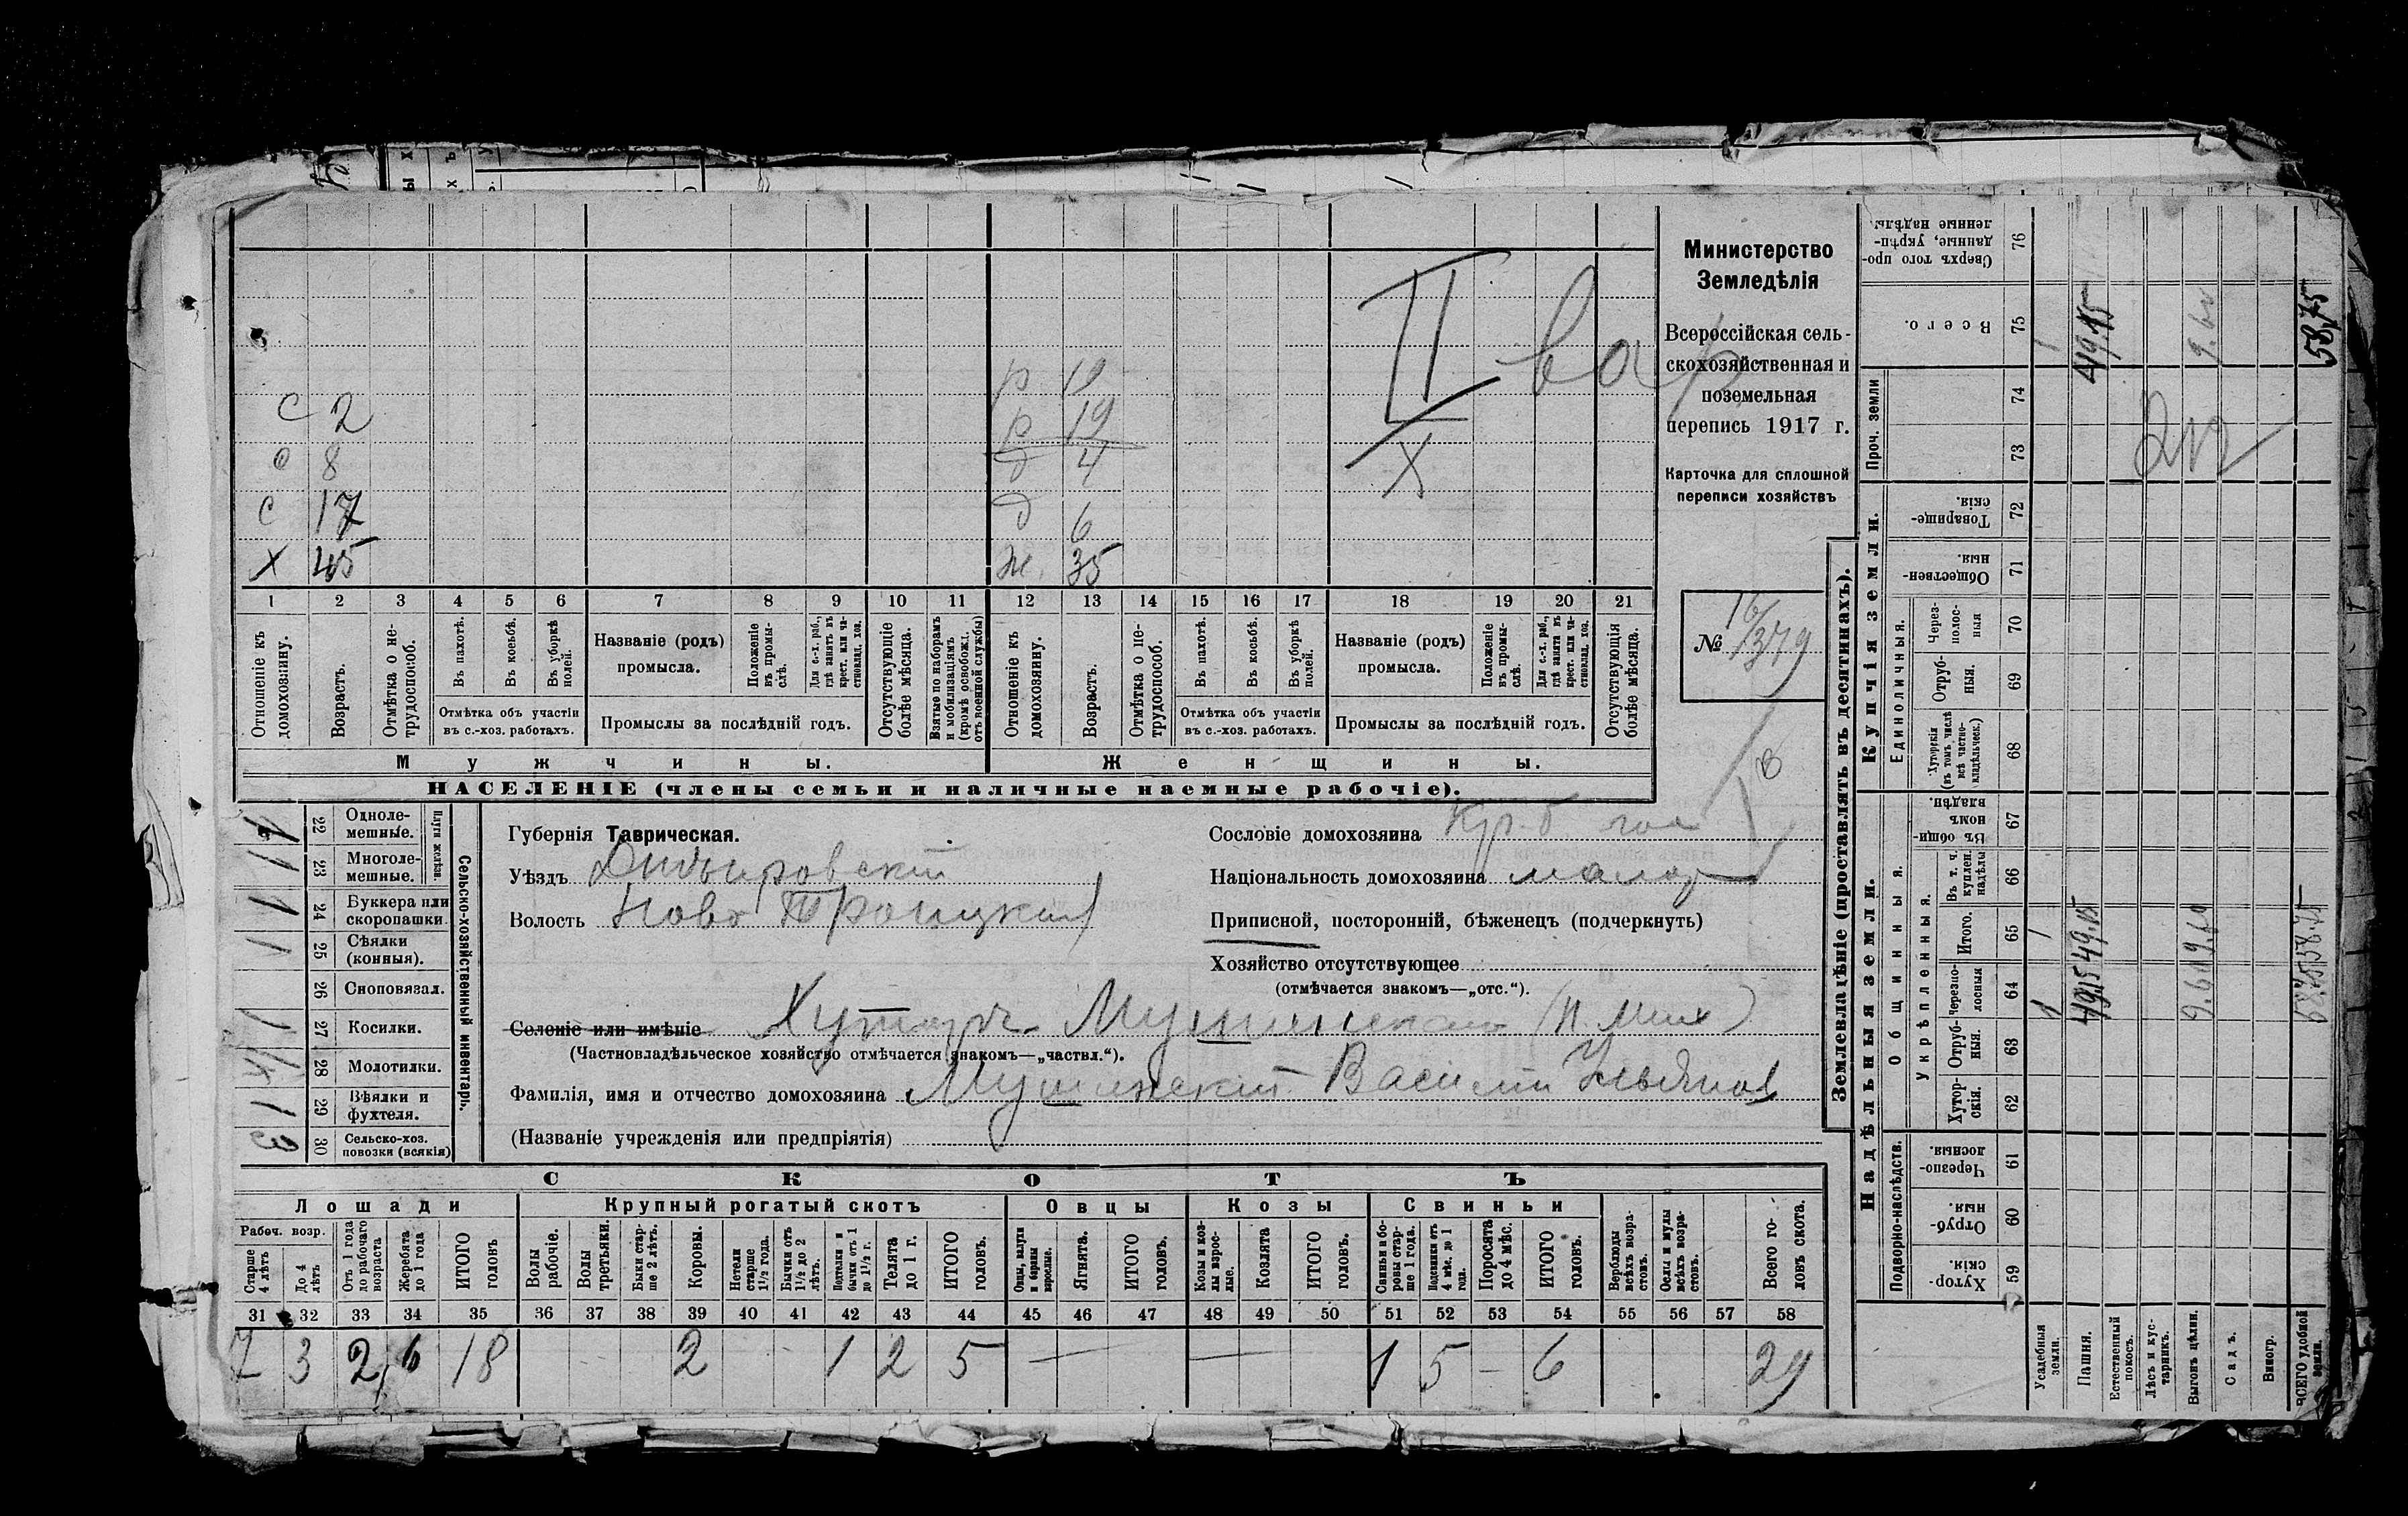 Министерство
Земледѣлія
Всероссійская сель-
скохозяйственная и
поземельная
перепись 1917 г.
Карточка для сплошной
переписи хозяйствъ
№ 16/379
II
X
р 19
с 2 р 19
с 8 д 4
с 17 д 6
х 45 ж. 35
1 2 3 4 5 6 7 8 9 10 11 12 13 14 15 16 17 18 19 20 21
Отношеніе къ домохозяину.
Возрастъ.
Отмѣтка о не-трудоспособ.
Въ пахотѣ.
Въ косьбѣ.
Въ уборкѣ полей.
Отмѣтка объ участіи
въ с.-хоз. работахъ.
Названіе (родъ)
промысла.
Положеніе въ промы-слѣ.
Для с.-х. раб., гдѣ занятъ въ крест. или ча-стновлад. хоз.
Промыслы за послѣдній годъ.
Отсутствующіе болѣе мѣсяца.
Взятые по наборамъ и мобилизаціямъ (кромѣ освобожд. отъ военной службы)
Отношеніе къ домохозяину.
Возрастъ.
Отмѣтка о не-трудоспособ.
Въ пахотѣ.
Въ косьбѣ.
Въ уборкѣ полей.
Отмѣтка объ участіи
въ с.-хоз. работахъ.
Названіе (родъ)
промысла.
Положеніе въ промы-слѣ.
Для с.-х. раб., гдѣ занята въ крест. или ча-стновлад. хоз.
Промыслы за послѣдній годъ.
Отсутствующія болѣе мѣсяца.
Мужчины. Женщины.
НАСЕЛЕНІЕ (члены семьи и наличные наемные рабочіе).
Сельско-хозяйственный инвентарь.
Плуги желѣз.
22 Одноле-мешные. 1
23 Многоле-мешные. 1
24 Буккера или скоропашки. 1
25 Сѣялки (конныя). 1
26 Сноповязал.
27 Косилки. 1
28 Молотилки.
29 Вѣялки и фухтеля. 1
30 Сельско-хоз. повозки (всякія) 3
Губернія Таврическая.
Уѣздъ Днѣпровскій
Волость Ново Троицкая
Сословіе домохозяина
Національность домохозяина малор
Приписной, посторонній, бѣженецъ (подчеркнуть)
Хозяйство отсутствующее
(отмѣчается знакомъ—„отс.“).
Селеніе или имѣніе Хуторъ Мушинскаго
(Частновладѣльческое хозяйство отмѣчается знакомъ—„частвл.“).
Фамилія, имя и отчество домохозяина Мушинскій Василій Ульянов
(Названіе учрежденія или предпріятія)
СКОТЪ
Лошади Крупный рогатый скотъ Овцы Козы Свиньи
Рабоч. возр.
Старше 4 лѣтъ
До 4 лѣтъ
Отъ 1 года до рабочаго возраста
Жеребята до 1 года
ИТОГО головъ
Волы рабочіе.
Волы третьяки.
Быки стар-ше 2 лѣтъ.
Коровы.
Нетели старше 1½ года.
Бычки отъ 1½ до 2 лѣтъ.
Подтелки и бычки отъ 1 до 1½ г.
Телята до 1 г.
ИТОГО головъ.
Овцы, валухи и бараны взрослые.
Ягнята.
ИТОГО головъ.
Козы и коз-лы взрос-лые.
Козлята
ИТОГО головъ.
Свиньи и бо-ровы стар-ше 1 года.
Подсвинки отъ 4 мѣс. до 1 года.
Поросята до 4 мѣс.
ИТОГО головъ.
Верблюды всѣхъ возра-стовъ.
Ослы и мулы всѣхъ возра-стовъ.
Всего го-ловъ скота.
31 32 33 34 35 36 37 38 39 40 41 42 43 44 45 46 47 48 49 50 51 52 53 54 55 56 57 58
7 3 2 6 18 2 1 2 5 — — 1 5 – 6 29
Землевладѣніе (проставлять въ десятинахъ).
Надѣльныя земли. Купчія земли. Проч. земли
Подворно-наслѣдств. Общинныя. Укрѣпленныя. Единоличныя.
59 Хутор-скія.
60 Отруб-ныя.
61 Черезпо-лосныя.
62 Хутор-скія.
63 Отруб-ныя.
64 Черезпо-лосныя
65 Итого.
66 Въ т. ч. куплен. надѣлы
67 Въ общи-номъ владѣн.
68 Хуторскія (въ томъ числѣ всѣ частно-владѣльческ.)
69 Отруб-ныя.
70 Через-полос-ныя
71 Обществен-ныя
72 Товарище-скія.
73
74
75 Всего.
76 Сверхъ того про-данные, укрѣп-ленные надѣлы.
Усадебныя земли. 1 1
Пашня. 49,15 49,15 49,15
Естественный покосъ.
Лѣсъ и кус-тарникъ.
Выгонъ цѣлин. 9.60 9.60 9.60
Садъ.
Виногр.
ВСЕГО удобной земли. 58.75 58.75 58,75